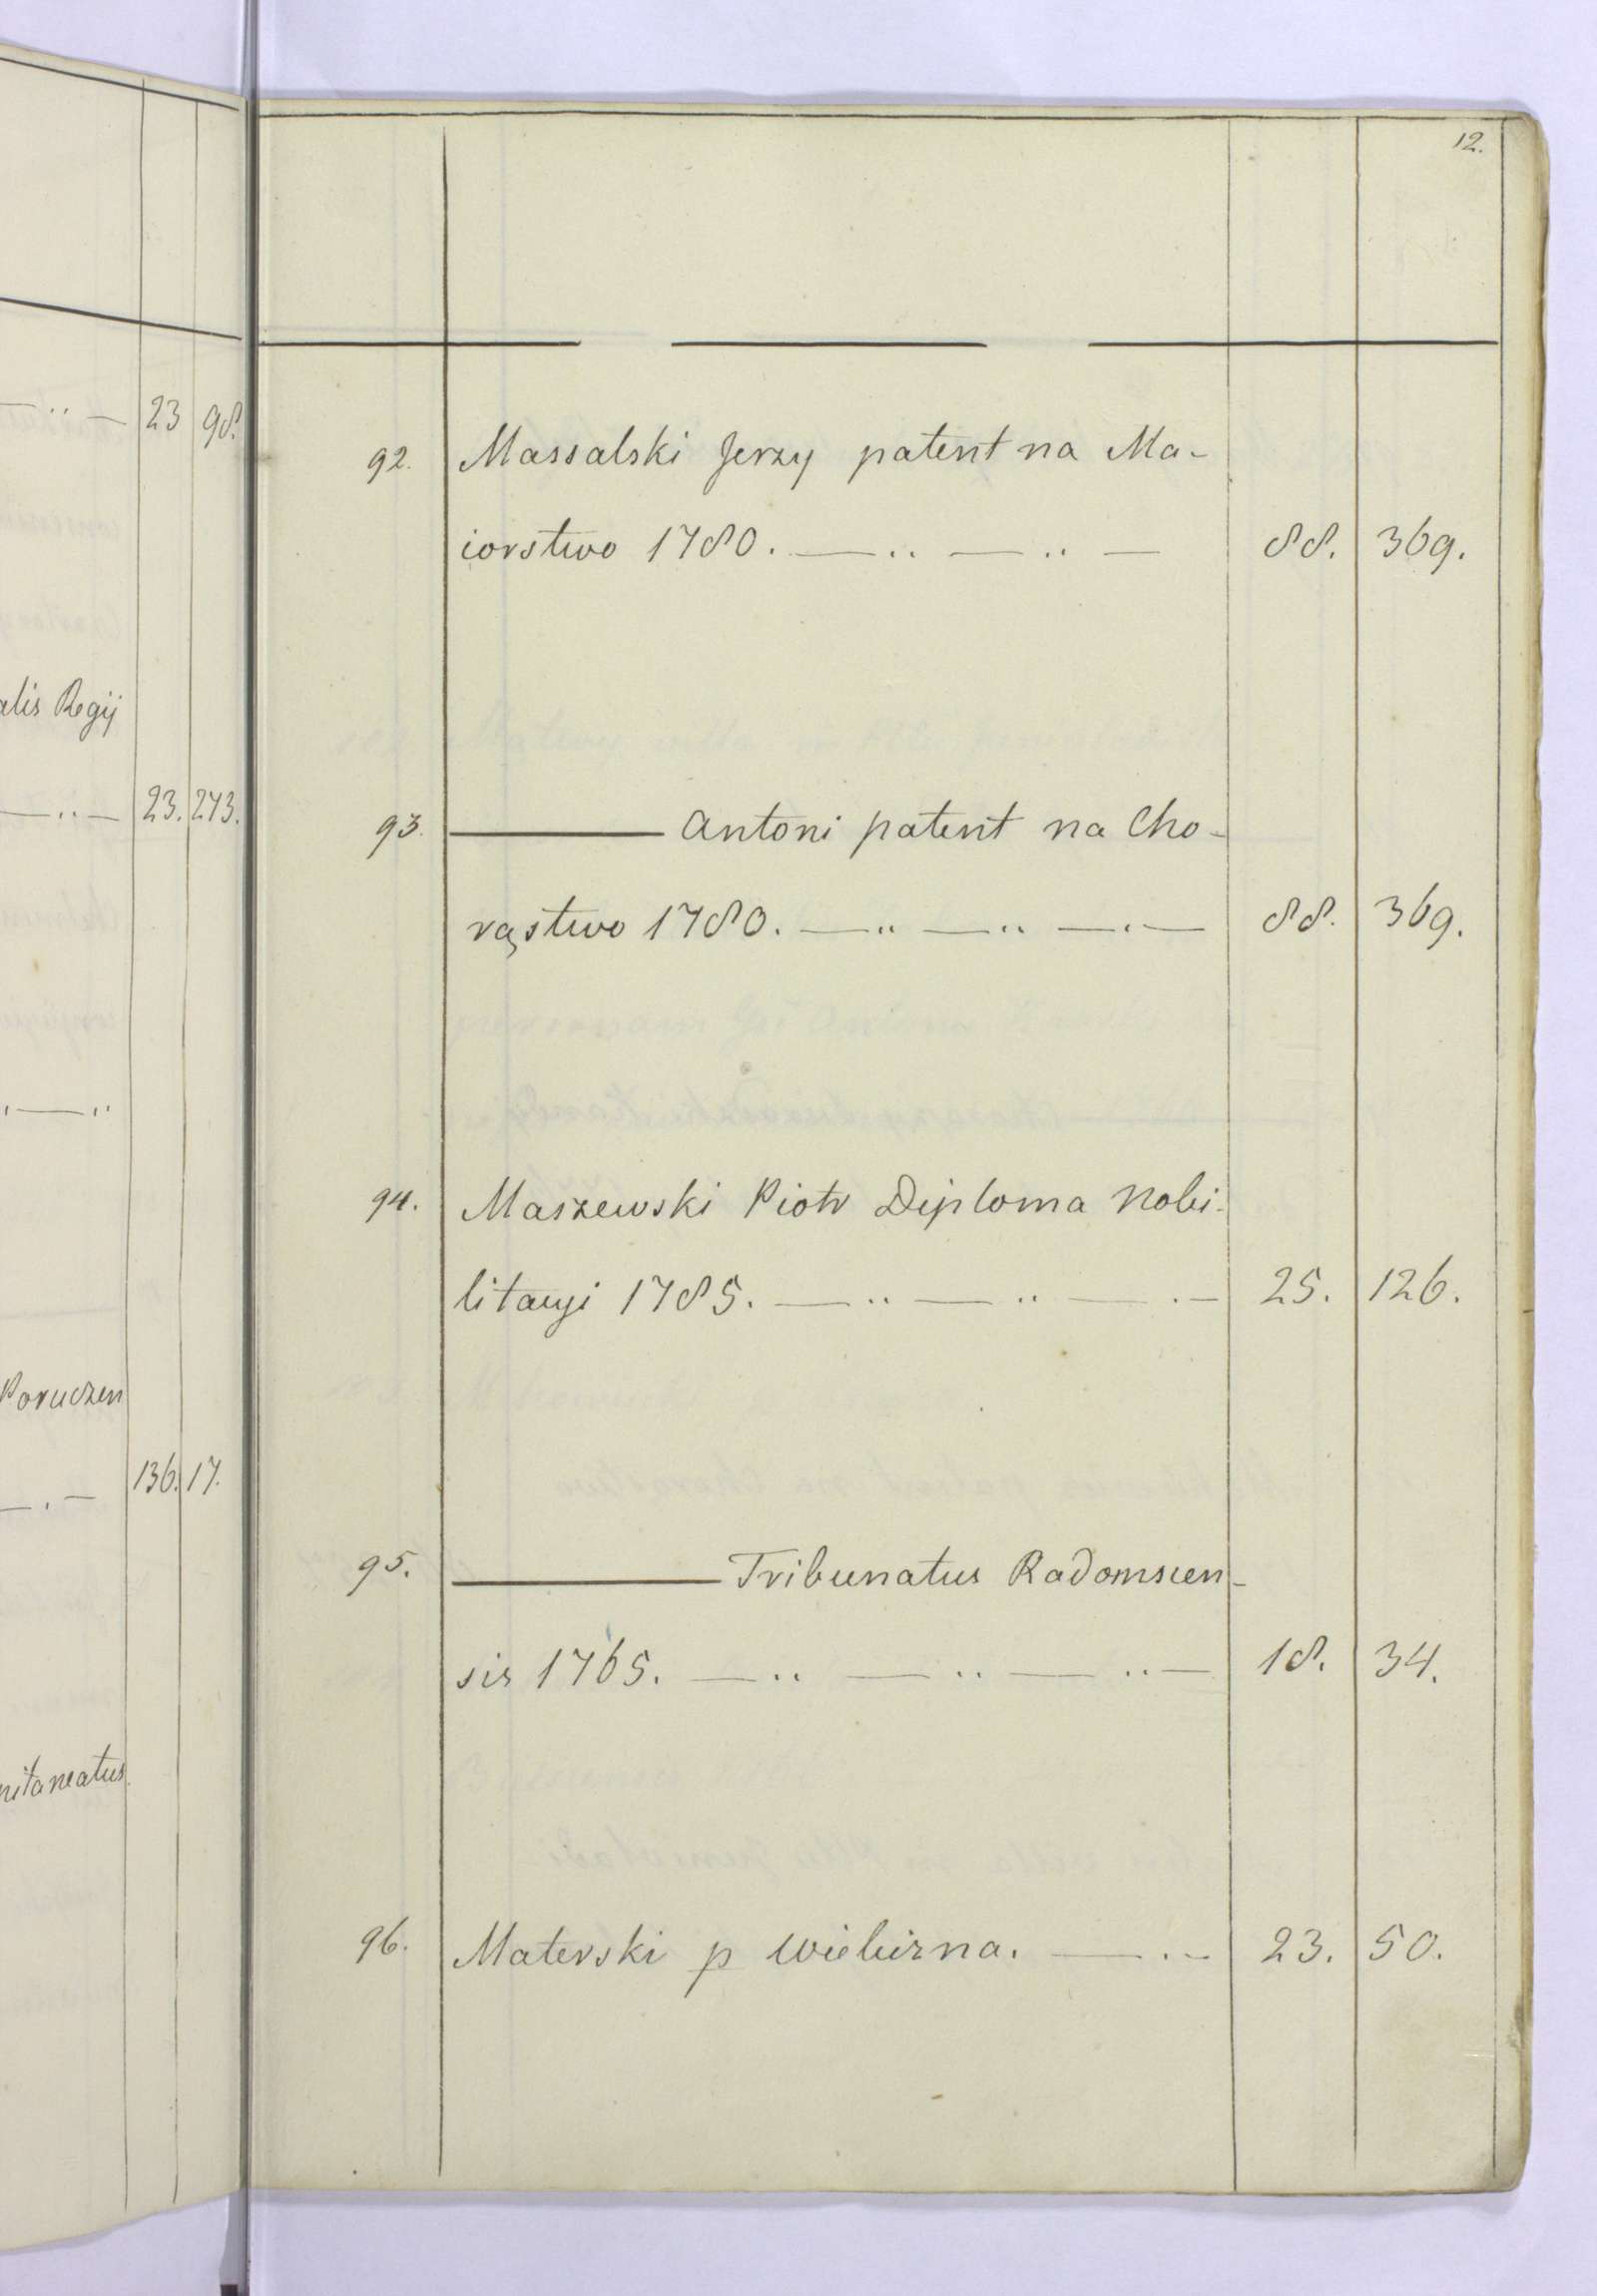 23 98.
alis Regij
23. 273.
Poruczen
136. 17.
nitaneatus
12.
92. Massalski Jerzy patent na Ma-
iorstwo 1780. — .. — .. — 88. 369.
93. ——— Antoni patent na Cho-
rąstwo 1780. — .. — .. — . — 88. 369.
94. Maszewski Piotr Diploma Nobi-
litacyi 1785. — .. — .. — . — 25. 126.
95. ——— Tribunatus Radomscen-
sis 1765. — .. — .. — .. — 18. 34.
96. Materski p — . — 23. 50.